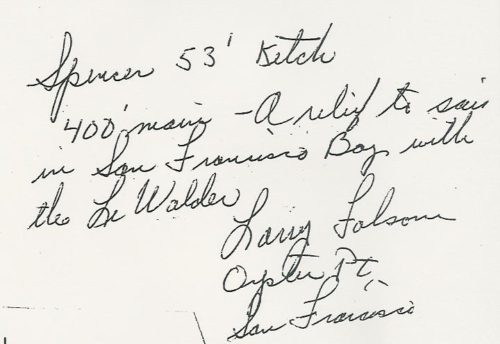 Spencer 53' Ketch
400' main - A relief to sail
in San Francisco Bay with
the Le Walder
Larry Folsom
Oyster Pt
San Francisco